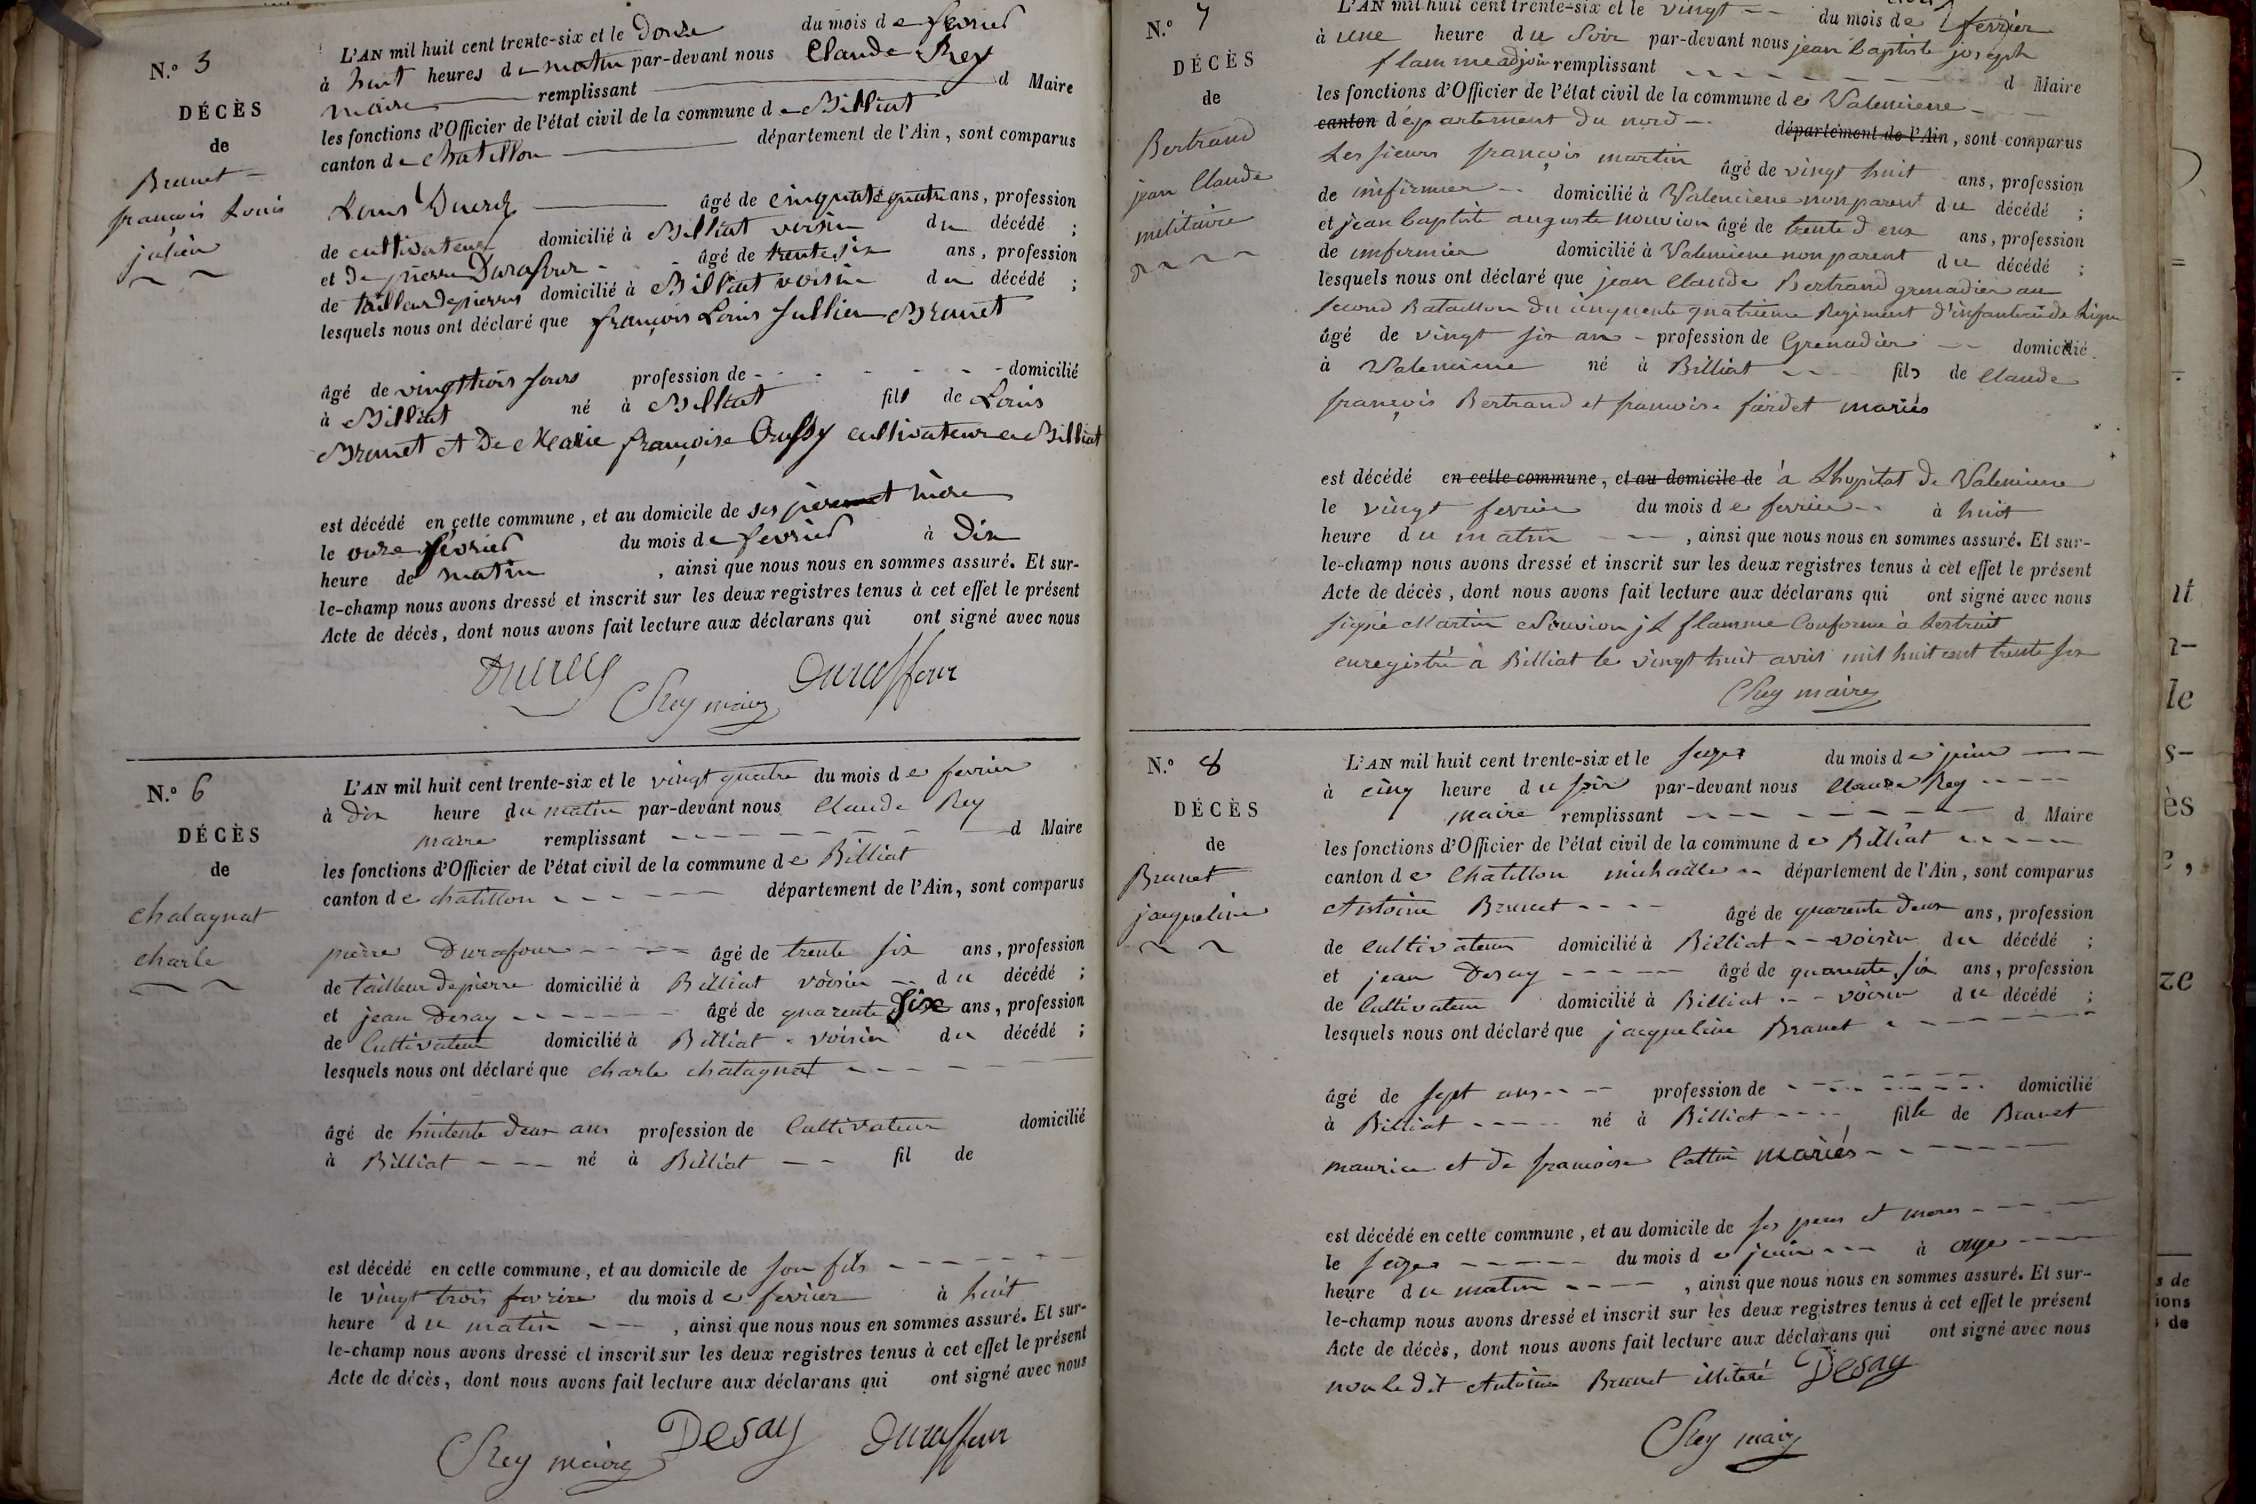 N.º 5
DÉCÈS
de
Brunet
françois Louis
julien
L'AN mil huit cent trente-six et le Douze du mois de fevrier
à huit heures du matin par-devant nous Claude Rey
maire remplissant d Maire
les fonctions d'Officier de l'état civil de la commune de Billiat
canton de chatillon département de l'Ain, sont comparus
Louis âgé de cinquante quatre ans, profession
de cultivateur domicilié à Billiat voisin du décédé ;
et De pierre Durafour âgé de trente six ans, profession
de tailleur de pierres domicilié à Billiat voisin du décédé ;
lesquels nous ont déclaré que françois Louis Jullien Brunet
âgé de vingt trois jours profession de domicilié
à Billiat né à Billiat fils de Louis
Brunet et De Marie françoise cultivateur a Billiat
est décédé en cette commune, et au domicile de ses père et mère
le onze fevrier du mois de fevrier à Dix
heure de matin , ainsi que nous nous en sommes assuré. Et sur-
le-champ nous avons dressé et inscrit sur les deux registres tenus à cet effet le présent
Acte de décès, dont nous avons fait lecture aux déclarans qui ont signé avec nous
CRey maire Duraffour
N.º 6
DÉCÈS
de
chatagnat
charle
L'AN mil huit cent trente-six et le vingt quatre du mois de fevrier
à Dix heure du matin par-devant nous Claude Rey
maire remplissant d Maire
les fonctions d'Officier de l'état civil de la commune de Billiat
canton de chatillon département de l'Ain, sont comparus
pierre Durafour âgé de trente six ans, profession
de tailleur de pierre domicilié à Billiat voisin du décédé ;
et jean Desay âgé de quarente six ans, profession
de Cultivateur domicilié à Billiat voisin du décédé ;
lesquels nous ont déclaré que charle chatagnat
âgé de huitente deux ans profession de Cultivateur domicilié
à Billiat né à Billiat fil de
est décédé en cette commune, et au domicile de son fils
le vingt trois fevrier du mois de fevrier à huit
heure du matin , ainsi que nous nous en sommes assuré. Et sur-
le-champ nous avons dressé et inscrit sur les deux registres tenus à cet effet le présent
Acte de décès, dont nous avons fait lecture aux déclarans qui ont signé avec nous
CRey maire Desay Duraffour
N.º 7
DÉCÈS
de
Bertrand
jean Claude
militaire
L'AN mil huit cent trente-six et le vingt du mois de fevrier
à une heure du Soir par-devant nous jean baptiste joseph
flamme adjoin remplissant d Maire
les fonctions d'Officier de l'état civil de la commune de Valenciene
canton département du nord département de l'Ain, sont comparus
Les sieurs françois martin âgé de vingt huit ans, profession
de infirmier domicilié à Valenciene non parent du décédé ;
et jean baptiste auguste nouvion âgé de trente deux ans, profession
de infirmier domicilié à Valenciene non parent du décédé ;
lesquels nous ont déclaré que jean Claude Bertrand grenadier au
second Bataillon du cinquente quatrieme Regiment d'infanterie de Ligne
âgé de vingt six ans profession de Grenadier domicilié
à Valenciene né à Billiat fils de Claude
françois Bertrand et francoise mariés
est décédé en cette commune, et au domicile de à Lhopital de Valenciene
le vingt fevrier du mois de fevrier à huit
heure du matin , ainsi que nous nous en sommes assuré. Et sur-
le-champ nous avons dressé et inscrit sur les deux registres tenus à cet effet le présent
Acte de décès, dont nous avons fait lecture aux déclarans qui ont signé avec nous
signé Martin Nouvion j h flamme Conforme à Lextrait
enregistré à Billiat le vingt huit avril mil huit cent trente six
CRey maire
N.º 8
DÉCÈS
de
Brunet
jacqueline
L'AN mil huit cent trente-six et le seize du mois de juin
à cinq heure du soir par-devant nous Claude Rey
maire remplissant d Maire
les fonctions d'Officier de l'état civil de la commune de Billiat
canton de Chatillon michaille département de l'Ain, sont comparus
Antoine Brunet âgé de quarente deux ans, profession
de Cultivateur domicilié à Billiat voisin du décédé ;
et jean Desay âgé de quarente six ans, profession
de Cultivateur domicilié à Billiat voisin du décédé ;
lesquels nous ont déclaré que jacqueline Brunet
âgé de sept ans profession de domicilié
à Billiat né à Billiat fille de Brunet
maurice et de francoise Cottin mariés
est décédé en cette commune, et au domicile de ses peres et meres
le seize du mois de juin à onze
heure du matin , ainsi que nous nous en sommes assuré. Et sur-
le-champ nous avons dressé et inscrit sur les deux registres tenus à cet effet le présent
Acte de décès, dont nous avons fait lecture aux déclarans qui ont signé avec nous
non le dit Antoine Brunet illiteré Desay
CRey maire